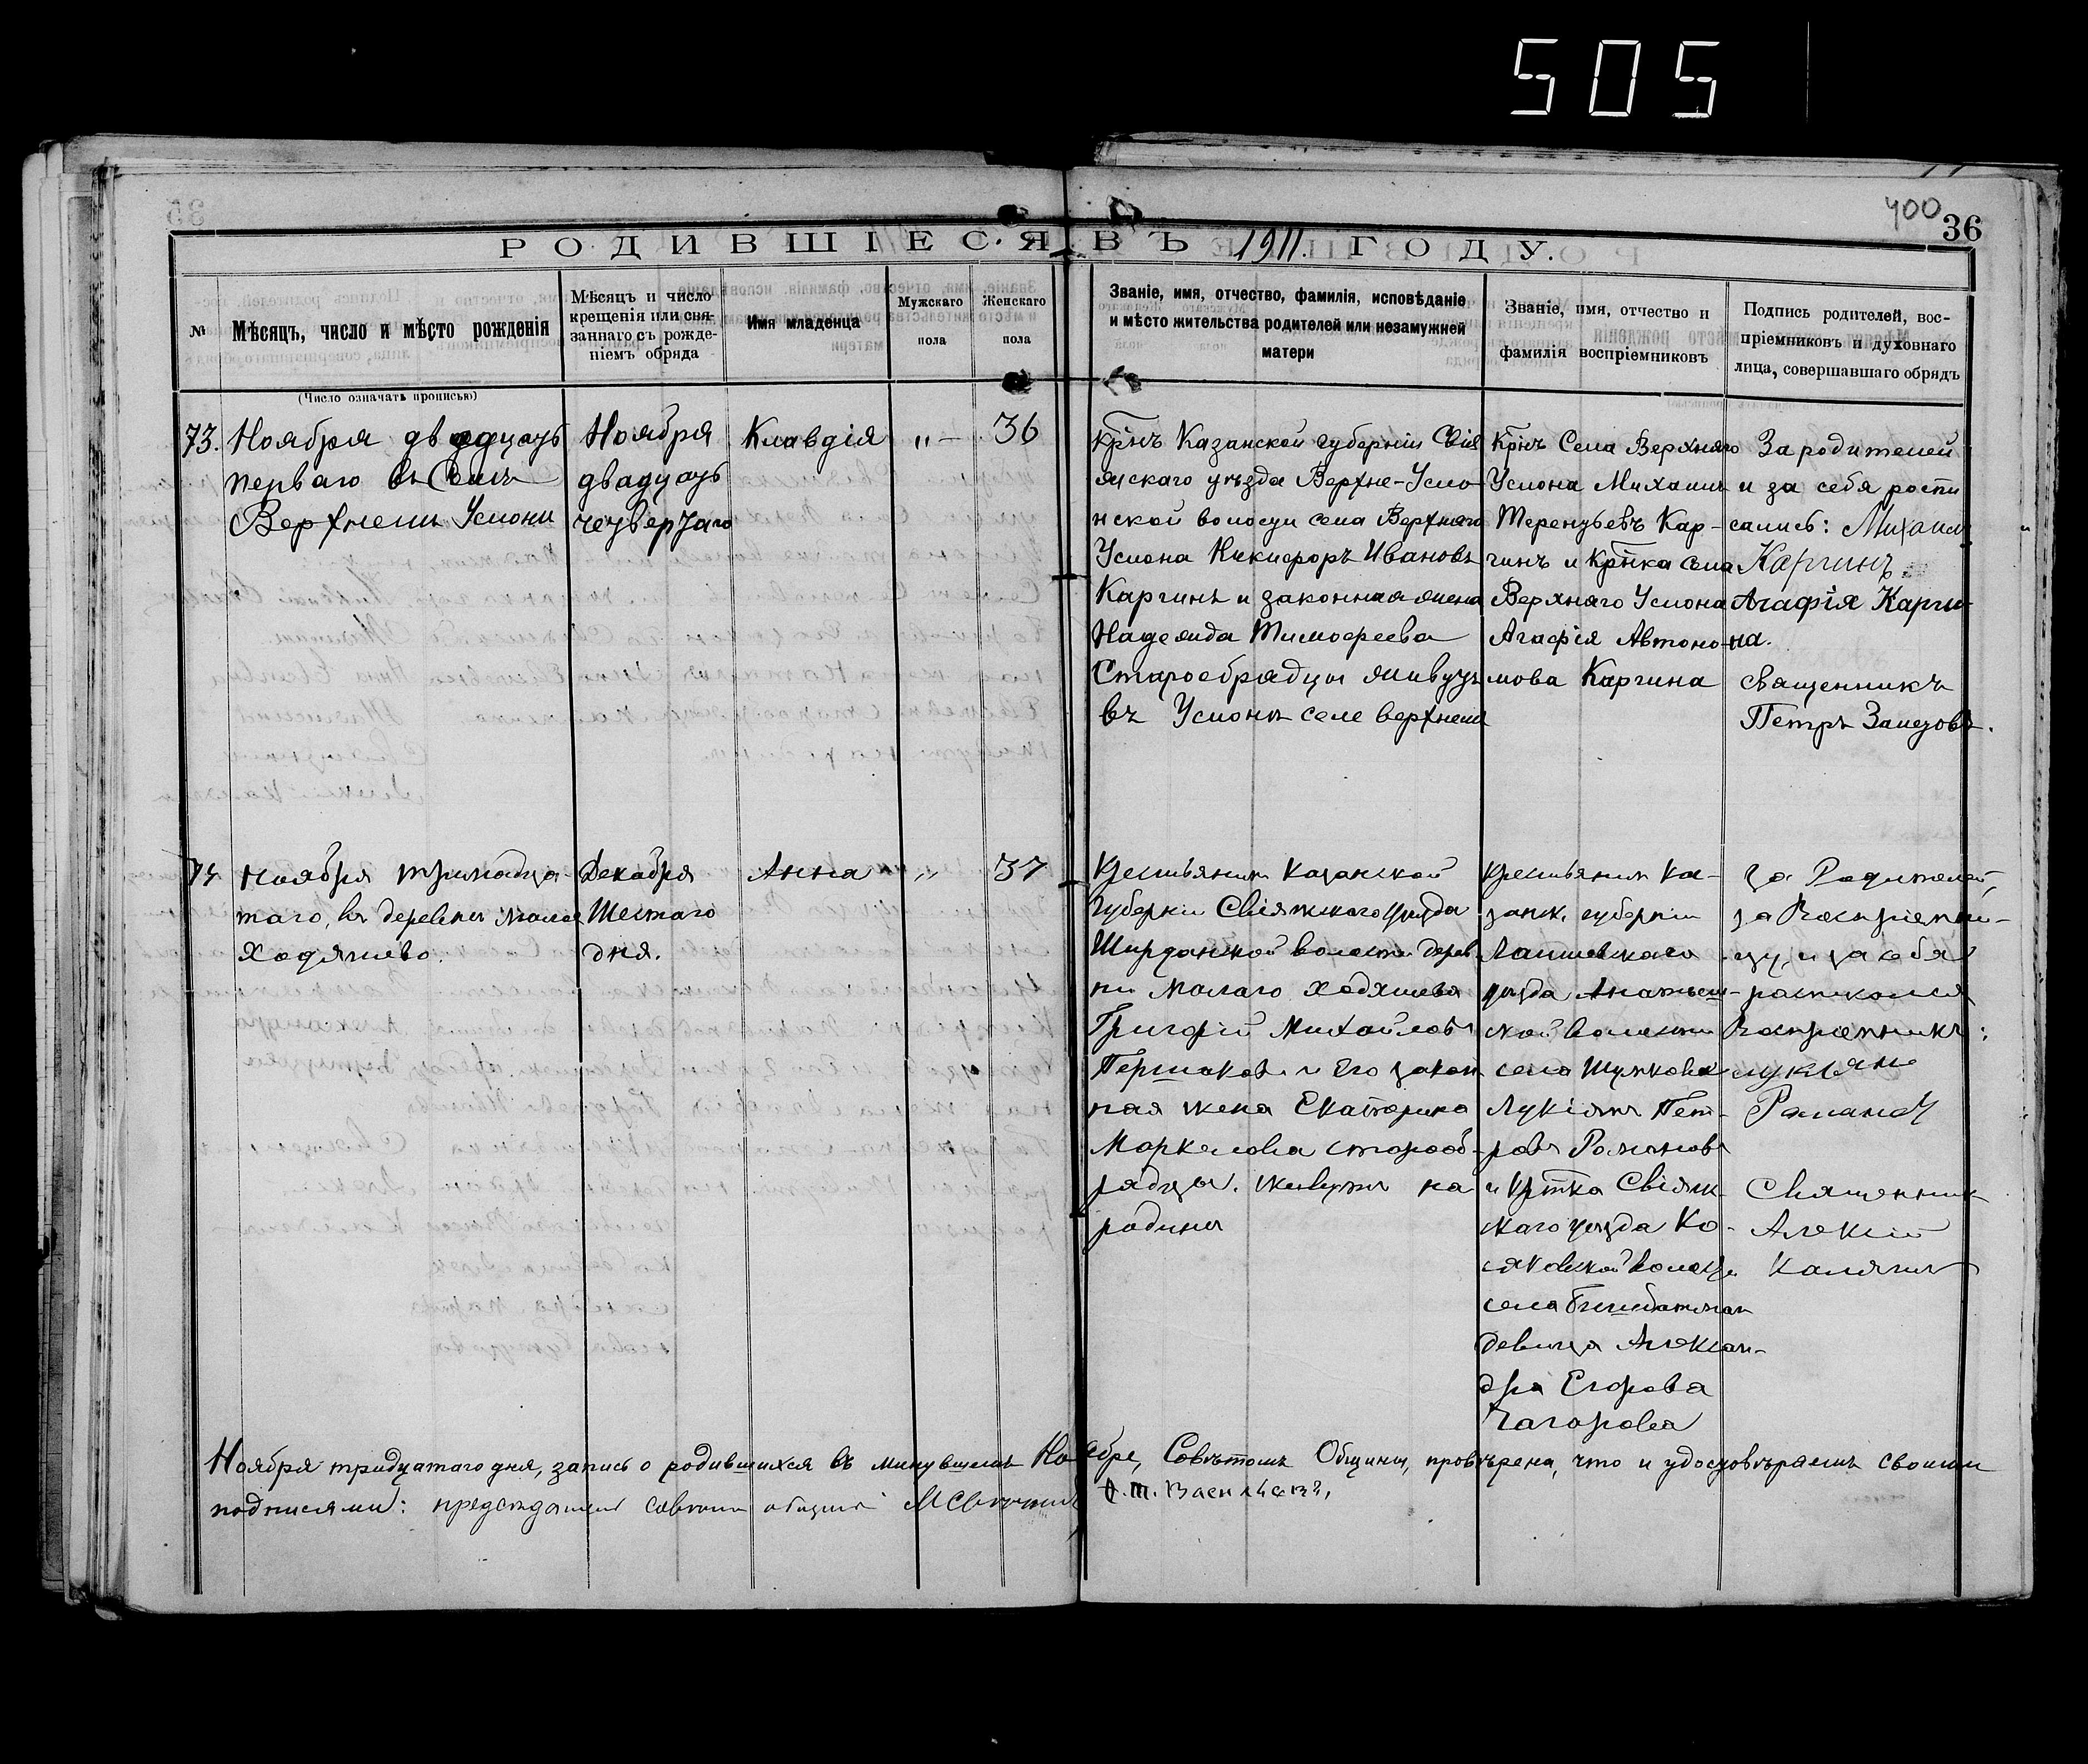 505
400
36
РОДИВШІЕСЯ ВЪ 1911 ГОДУ.
№
Мѣсяцъ, число и мѣсто рожденія
Мѣсяцъ и число
крещенія или свя-
заннаго съ рожде-
ніемъ обряда
Имя младенца
Мужскаго
пола
Женскаго
пола
Званіе, имя, отчество, фамилія, исповѣданіе
и мѣсто жительства родителей или незамужней
матери
Званіе, имя, отчество и
фамилія воспріемниковъ
Подпись родителей, вос-
пріемниковъ и духовнаго
лица, совершавшаго обрядъ
(Число означать прописью)
73.
Ноября двадцать
перваго въ Селѣ
Верхнемъ Услони
Ноября
двадцать
четвертаго
Клавдія
„ –
36
Крнъ Казанской губерніи Свія
жскаго уѣзда Верхне-Усло
нской волости села Верхняго
Услона Никифоръ Ивановъ
Каргинъ и законная жена
Надежда Тимофеева
Старообрядцы живутъ
въ Услонѣ селе верхнемъ
Крнъ Села Верхняго
Услона Михаилъ
Терентьевъ Кар-
гинъ и Крнка села
Верхняго Услона
Агафія Автоно-
мова Каргина
За родителей
и за себя роспи
сались: Михаил
Каргинъ
Агафія Карги
на.
священникъ
Петръ
74
Ноября тринадца-
таго, въ деревнѣ Малое
Ходяшево.
Декабря
Шестаго
дня.
Анна
„
37
Крестьянинъ Казанской
Губерніи Свіяжскаго уѣзда
Ширданской волости дерев
ни Малаго Ходяшева
Григорій Михайловъ
Першаковъ и Его закон
ная жена Екатерина
Маркелова старооб-
рядцы. живутъ на
родинѣ
Крестьянинъ Ка-
занск. губерніи
Лаишевскаго
уѣзда
ской волости
села Шумкова
Лукіянъ Пет-
ровъ Романовъ
и Крстка Свіяж-
скаго уѣзда Ко-
ской волости
села
девица Алексан-
дра Егорова
Чагорова
за Родителей,
за Воспріемни-
цу, и за себя
росписался
Воспріемникъ:
лукіянъ
Романов
Священник
Алексій
Калягин
Ноября тридцатаго дня, запись о родившихся въ минувшемъ Ноябре, Совѣтомъ Общины, провѣрена, что и удостовѣряемъ своими
подписями: председатель совета общины